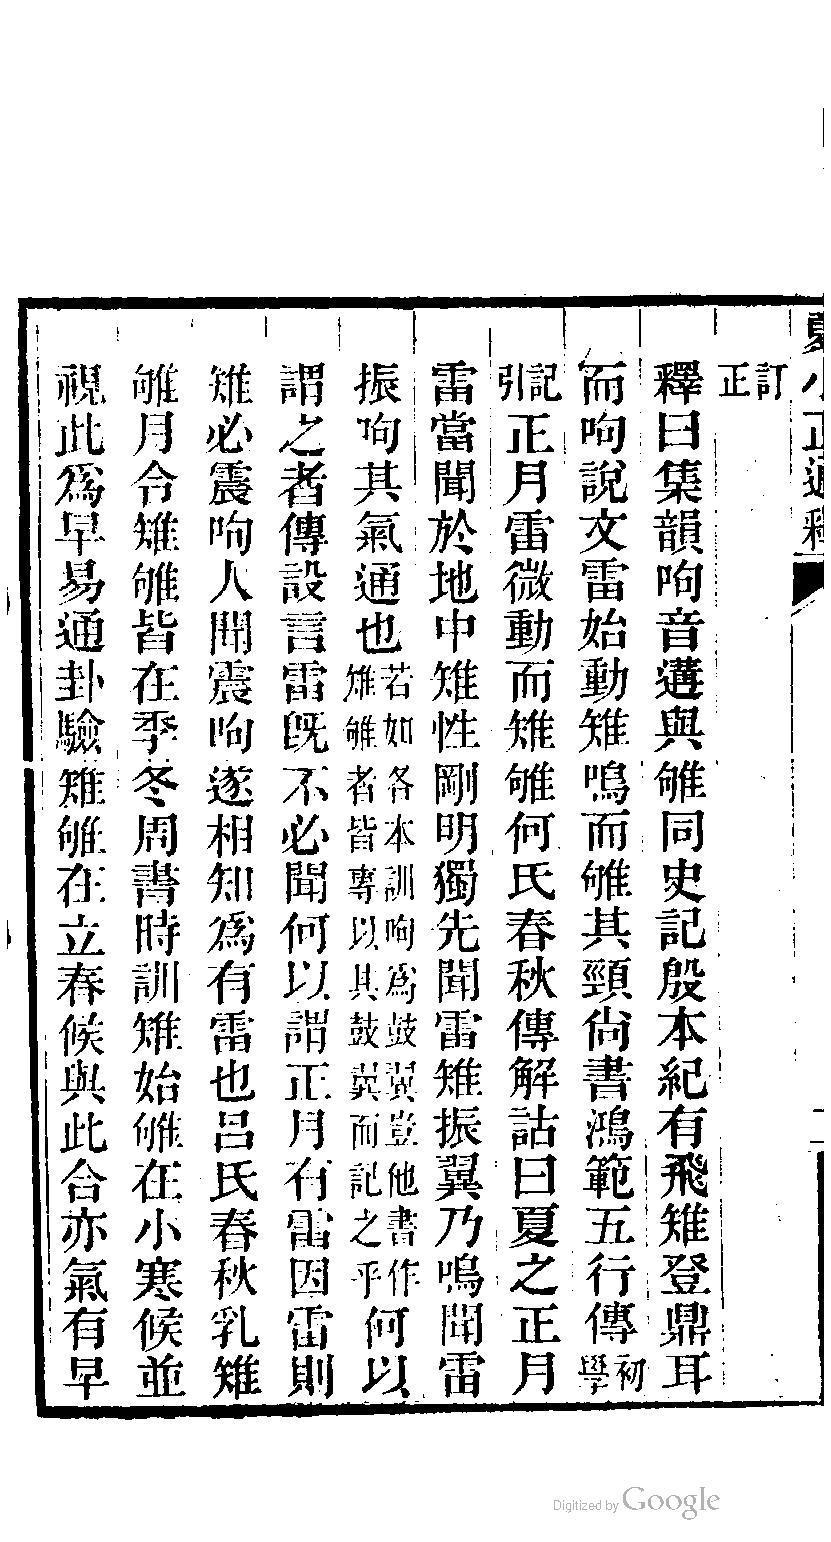 夏小正通釋
訂正
釋曰集韻呴音遘與雊同史記殷本紀有飛雉登鼎耳
而呴說文雷始動雉鳴而雊其頸尙書鴻範五行傳初學
記引正月雷微動而雉雊何氏春秋傳解詁曰夏之正月
雷當聞於地中雉性剛明獨先聞雷雉振翼乃鳴聞雷
振呴其氣通也若如各本訓呴爲鼓翼豈他書作雉雊者皆專以其鼓翼而記之乎何以
謂之者傳設言雷旣不必聞何以謂正月有雷因雷則
雉必震呴人聞震呴遂相知爲有雷也呂氏春秋乳雉
雊月令雉雊皆在季冬周書時訓雉始雊在小寒候並
視此爲早易通卦驗雉雊在立春候與此合亦氣有早
Digitized by Google